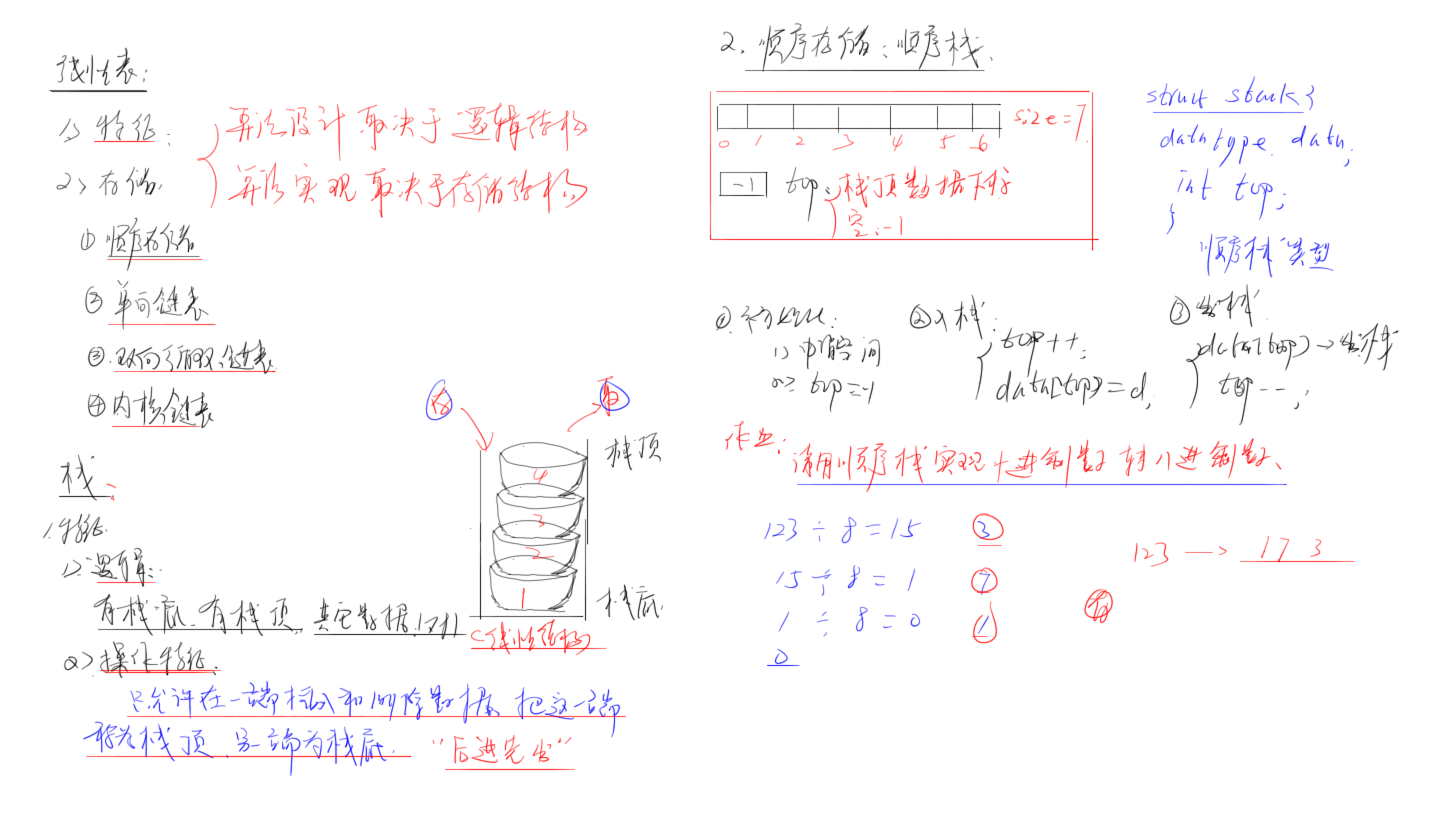 线性表:
1> 特征:
算法设计取决于逻辑结构
2> 存储.
算法实现取决于存储结构
① 顺序存储
② 单向链表
③ 双向循环双链表
④ 内核链表
存
取
栈顶
4
3
2
1
栈底
(线性结构)
栈:
1.特征.
1> 逻辑:
有栈底.有栈顶.其它数据1对1
2> 操作特征.
只允许在一端插入和删除数据,把这一端
称为栈顶,另一端为栈底.
"后进先出"
2. 顺序存储:顺序栈.
size=7
0 1 2 3 4 5 6
-1 top: 栈顶数据下标
空:-1
struct stack{
datatype data;
int top;
}
顺序栈类型
① 初始化:
1> 申请空间
2> top=-1
② 入栈:
top++;
data[top]=d;
③ 出栈
data[top]→出栈
top--;
作业:
请用顺序栈实现十进制数转八进制数、
123÷8=15 3
15÷8=1 7
1÷8=0 1
0
123 → 173
存